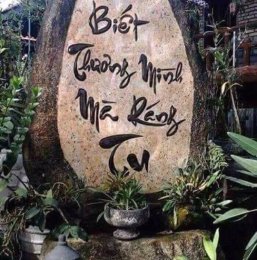 Biết
Thương Mình
Mà Ráng
Tu